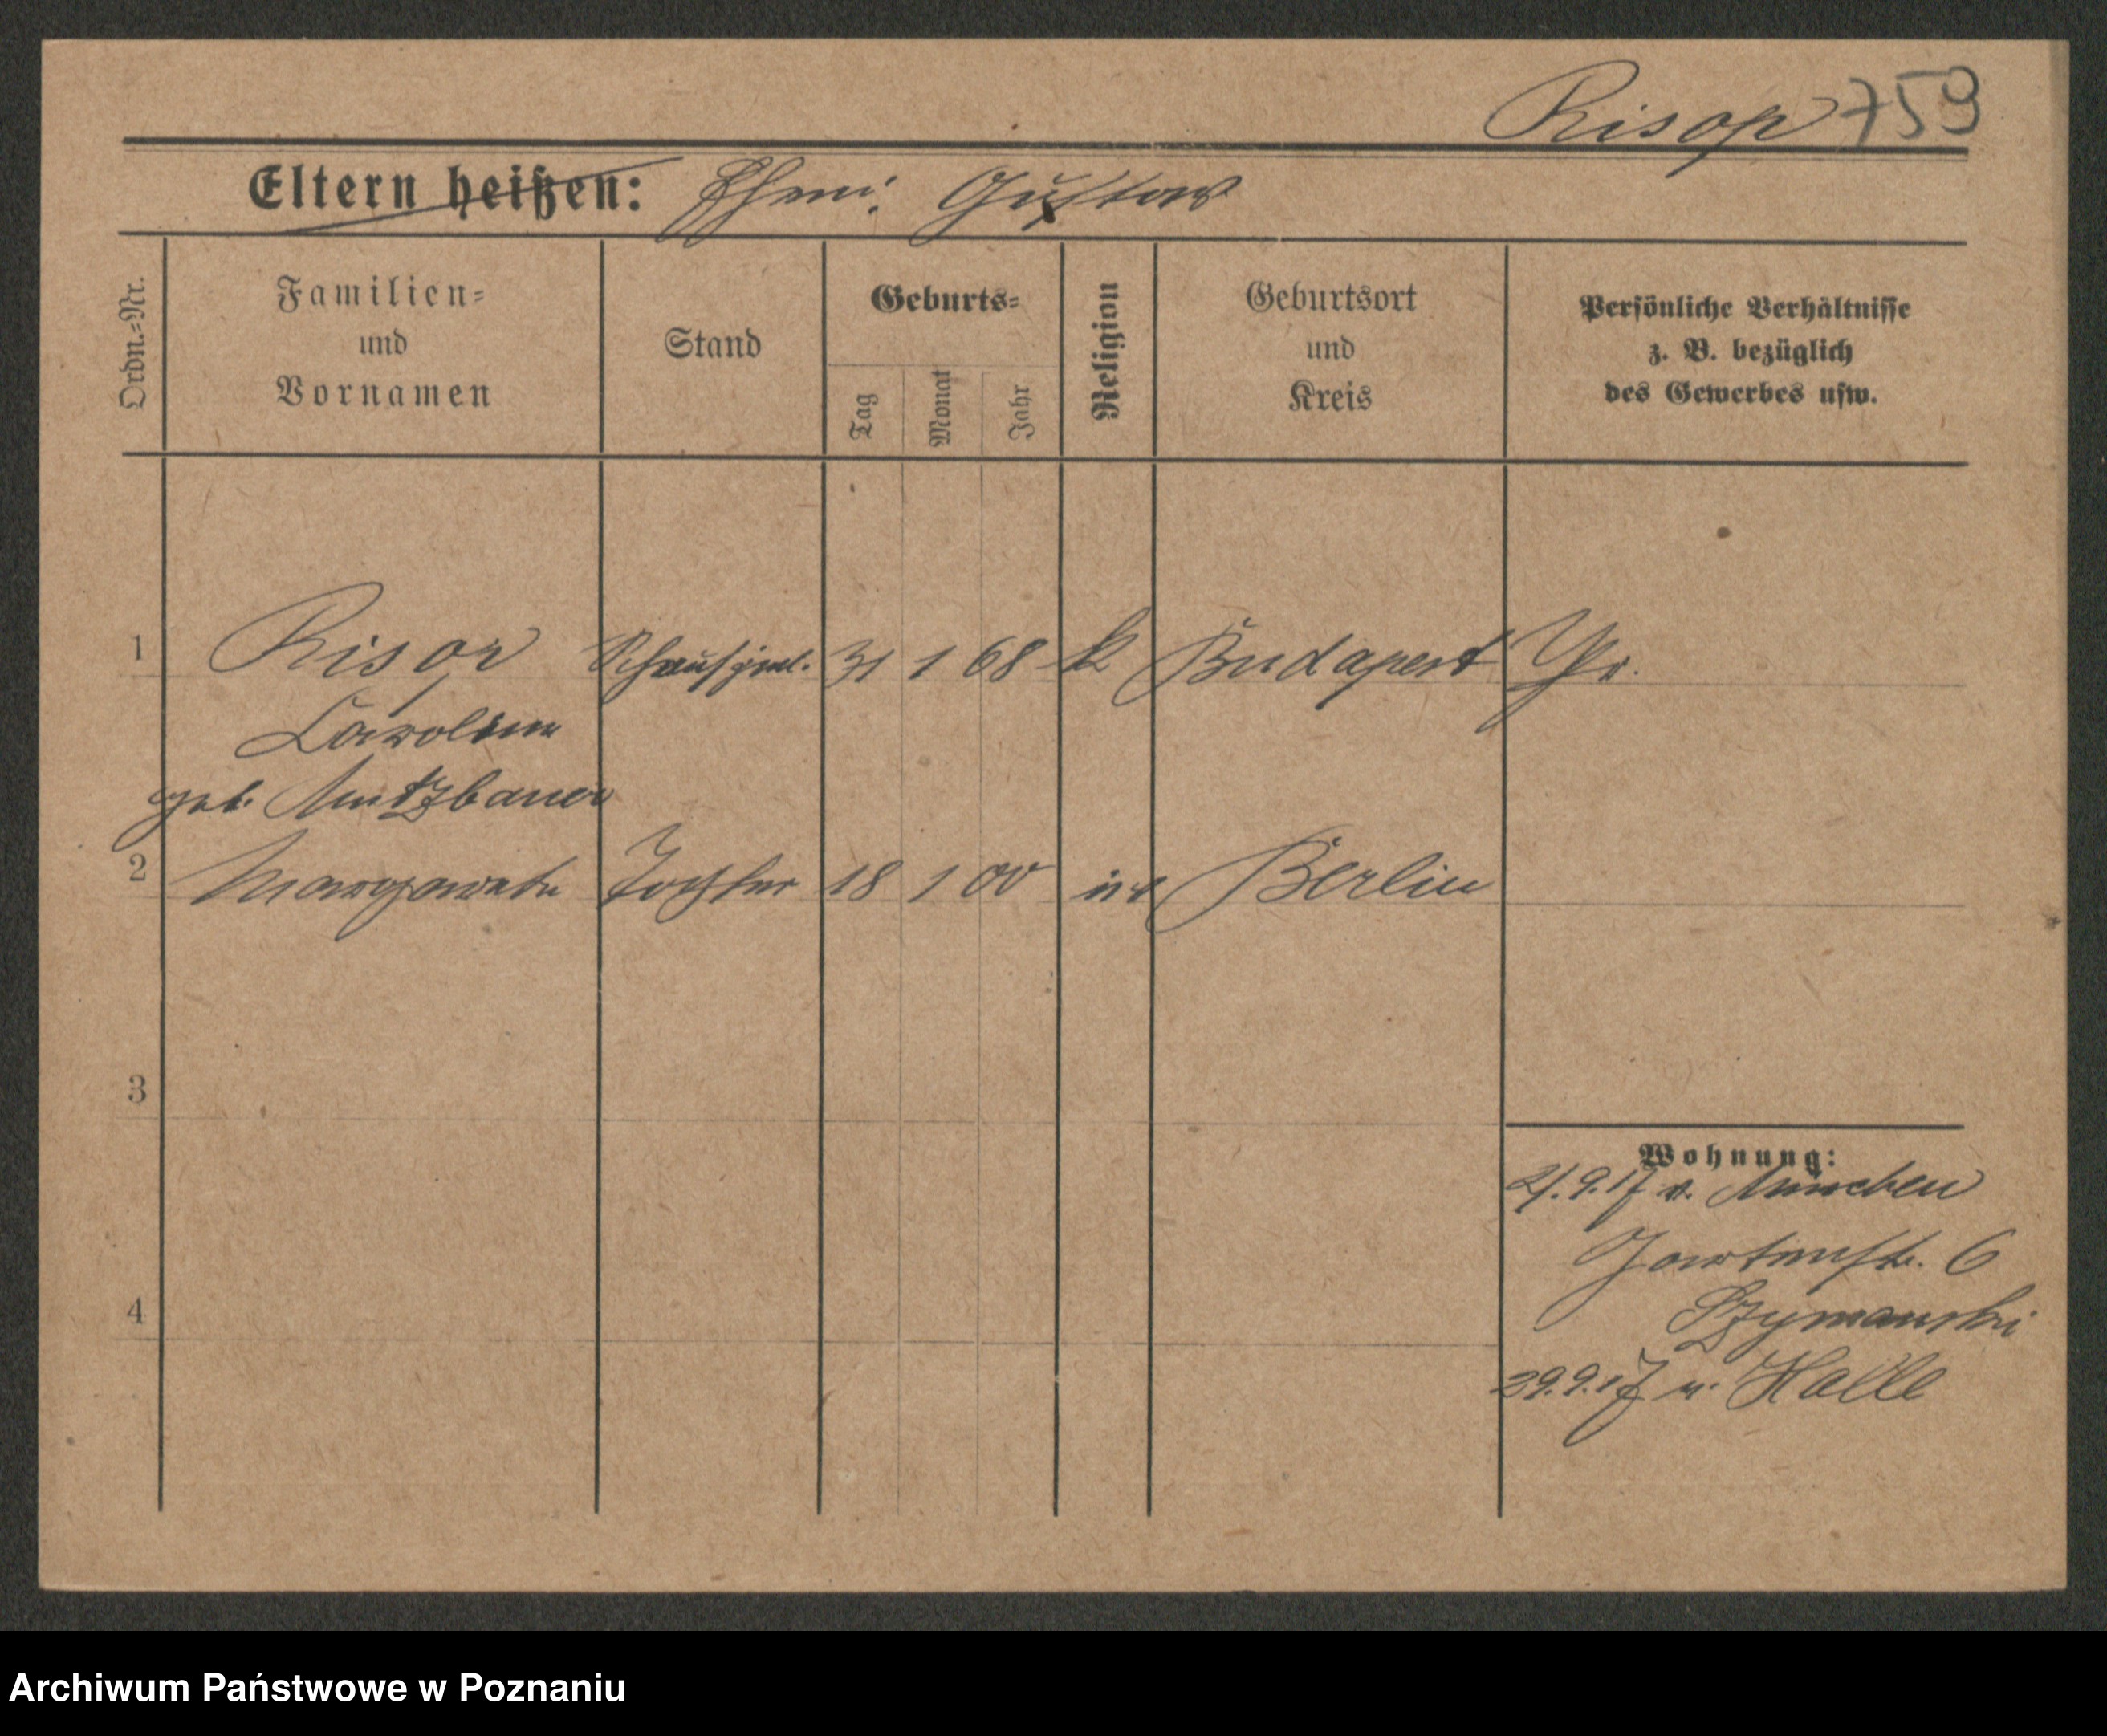 Risop 759
Eltern heißen: Ehem: Gustav
Ordn.-Nr.
Familien-
und
Vornamen
Stand
Geburts-
Tag
Monat
Jahr
Religion
Geburtsort
und
Kreis
Persönliche Verhältnisse
z. B. bezüglich
des Gewerbes usw.
1 Risop 31 1 68 k Budapest Pr.
Caroline
geb. Mutzbauer
2 Margarete Tochter 18 1 00 ev Berlin
3
4
Wohnung:
21.9.17 v. München
Gartenstr. 6
Szymanski
29.9.17 n. Halle
Archiwum Państwowe w Poznaniu